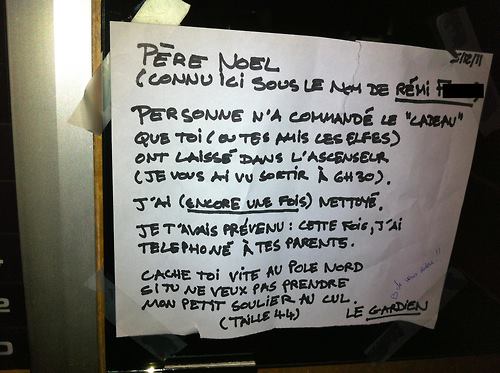 5/12/11
PÈRE NOEL
(CONNU ICI SOUS LE NOM DE RÉMI F
PERSONNE N'A COMMANDÉ LE "CADEAU"
QUE TOI (OU TES AMIS LES ELFES)
ONT LAISSÉ DANS L'ASCENSEUR
(JE VOUS AI VU SORTIR À 6H30).
J'AI (ENCORE UNE FOIS) NETTOYÉ.
JE T'AVAIS PRÉVENU : CETTE FOIS, J'AI
TELEPHONÉ À TES PARENTS.
CACHE TOI VITE AU POLE NORD
SI TU NE VEUX PAS PRENDRE
MON PETIT SOULIER AU CUL.
(TAILLE 44)
LE GARDIEN
2